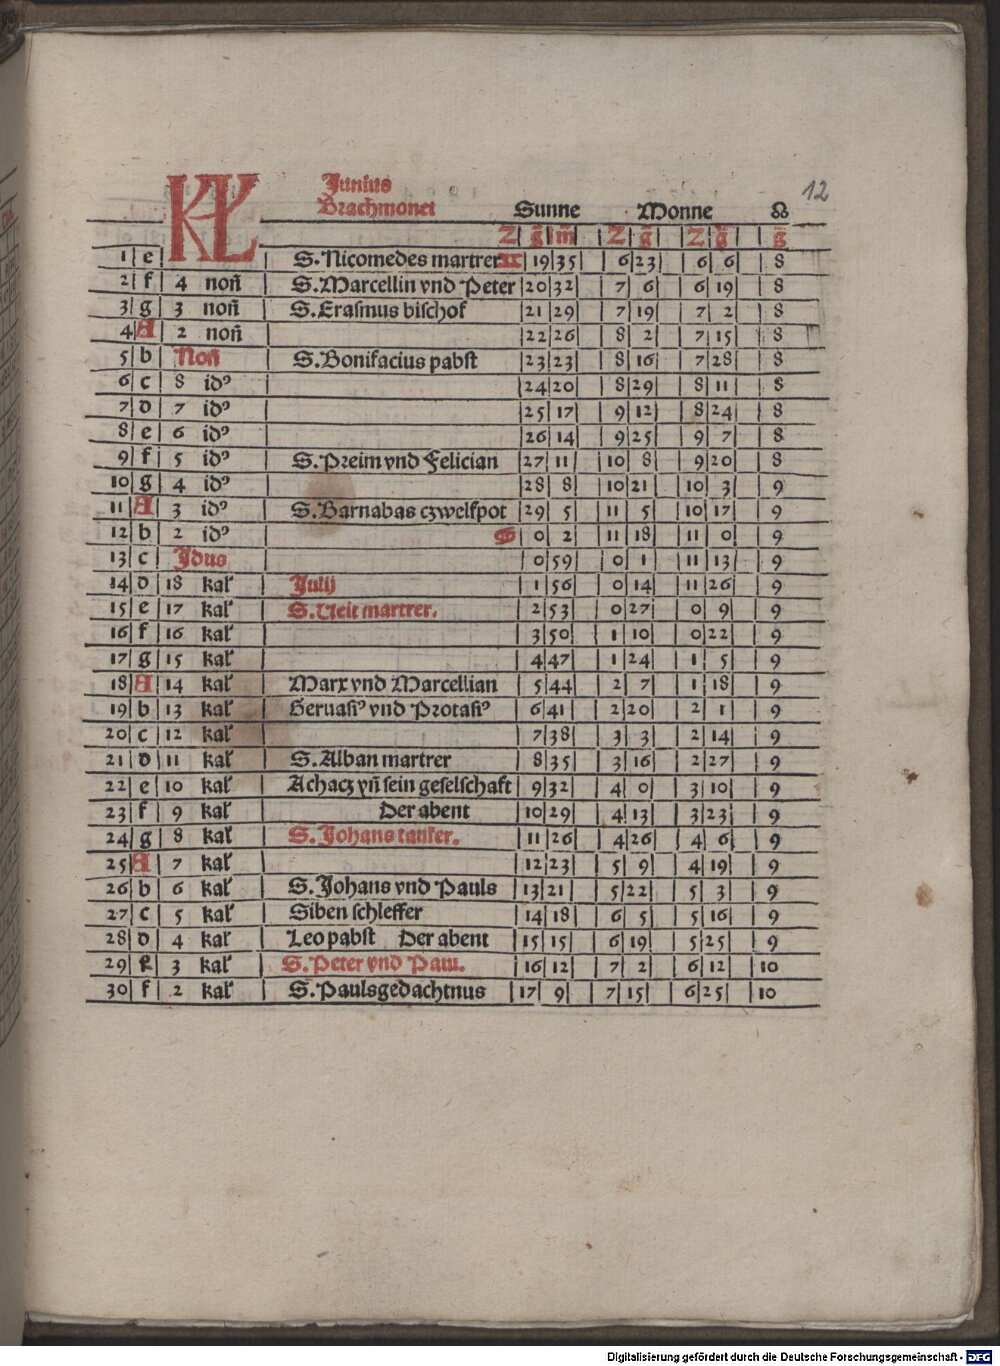 12
KL Junius
Brachmonet Sunne Monne ☊
Z g̃ m̃ Z g̃ Z g̃ g̃
1 e S. Nicomedes martrer II 19 35 6 23 6 6 8
2 f 4 non̄ S. Marcellin vnd Peter 20 32 7 6 6 19 8
3 g 3 non̄ S. Erasmus bischof 21 29 7 19 7 2 8
4 A 2 non̄ 22 26 8 2 7 15 8
5 b Non̄ S. Bonifacius pabst 23 23 8 16 7 28 8
6 c 8 idꝰ 24 20 8 29 8 11 8
7 d 7 idꝰ 25 17 9 12 8 24 8
8 e 6 idꝰ 26 14 9 25 9 7 8
9 f 5 idꝰ S. Preim vnd Felician 27 11 10 8 9 20 8
10 g 4 idꝰ 28 8 10 21 10 3 9
11 A 3 idꝰ S. Barnabas czwelfpot 29 5 11 5 10 17 9
12 b 2 idꝰ S 0 2 11 18 11 0 9
13 c Jdus 0 59 0 1 11 13 9
14 d 18 kal' Julij 1 56 0 14 11 26 9
15 e 17 kal' S. Ueit martrer. 2 53 0 27 0 9 9
16 f 16 kal' 3 50 1 10 0 22 9
17 g 15 kal' 4 47 1 24 1 5 9
18 A 14 kal' Marx vnd Marcellian 5 44 2 7 1 18 9
19 b 13 kal' Geruasiꝰ vnd Protasiꝰ 6 41 2 20 2 1 9
20 c 12 kal' 7 38 3 3 2 14 9
21 d 11 kal' S. Alban martrer 8 35 3 16 2 27 9
22 e 10 kal' Achacz vn̄ sein geselschaft 9 32 4 0 3 10 9
23 f 9 kal' Der abent 10 29 4 13 3 23 9
24 g 8 kal' S. Johans taufer. 11 26 4 26 4 6 9
25 A 7 kal' 12 23 5 9 4 19 9
26 b 6 kal' S. Johans vnd Pauls 13 21 5 22 5 3 9
27 c 5 kal' Siben schleffer 14 18 6 5 5 16 9
28 d 4 kal' Leo pabst Der abent 15 15 6 19 5 25 9
29 e 3 kal' S. Peter vnd Paul. 16 12 7 2 6 12 10
30 f 2 kal' S. Paulsgedachtnus 17 9 7 15 6 25 10
Digitalisierung gefördert durch die Deutsche Forschungsgemeinschaft - DFG